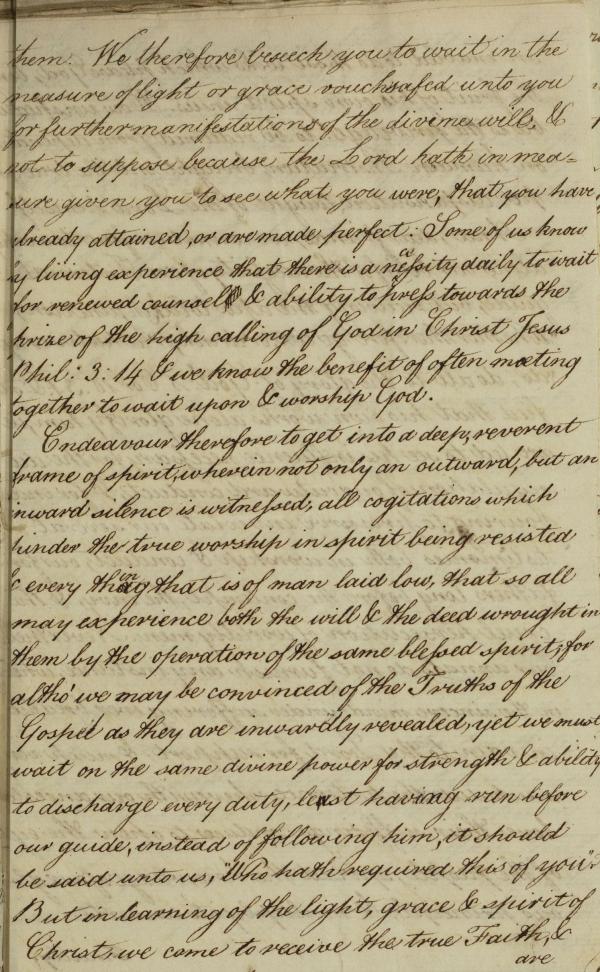 them. We therefore beseech you to wait in the
measure of light or grace vouchsafed unto you
for further manifestations of the divine will, &
not to suppose because the Lord hath in mea=
sure given you to see what you were, that you have
already attained, or are made perfect: Some of us know
by living experience that there is a necessity daily to wait
for renewed counsel & ability to press towards the
prize of the high calling of God in Christ Jesus
Phil: 3: 14 & we know the benefit of often meeting
together to wait upon & worship God.
Endeavour therefore to get into a deep, reverent
frame of spirit, wherein not only an outward, but an
inward silence is witnessed, all cogitations which
hinder the true worship in spirit being resisted
& every thing that is of man laid low, that so all
may experience both the will & the deed wrought in
them by the operation of the same blessed spirit; for
altho' we may be convinced of the Truths of the
Gospel as they are inwardly revealed, yet we must
wait on the same divine power for strength & ability
to discharge every duty, lest having run before
our guide, instead of following him, it should
be said unto us, "Who hath required this of you"?
But in learning of the light, grace & spirit of
Christ, we come to receive the true Faith, &
are